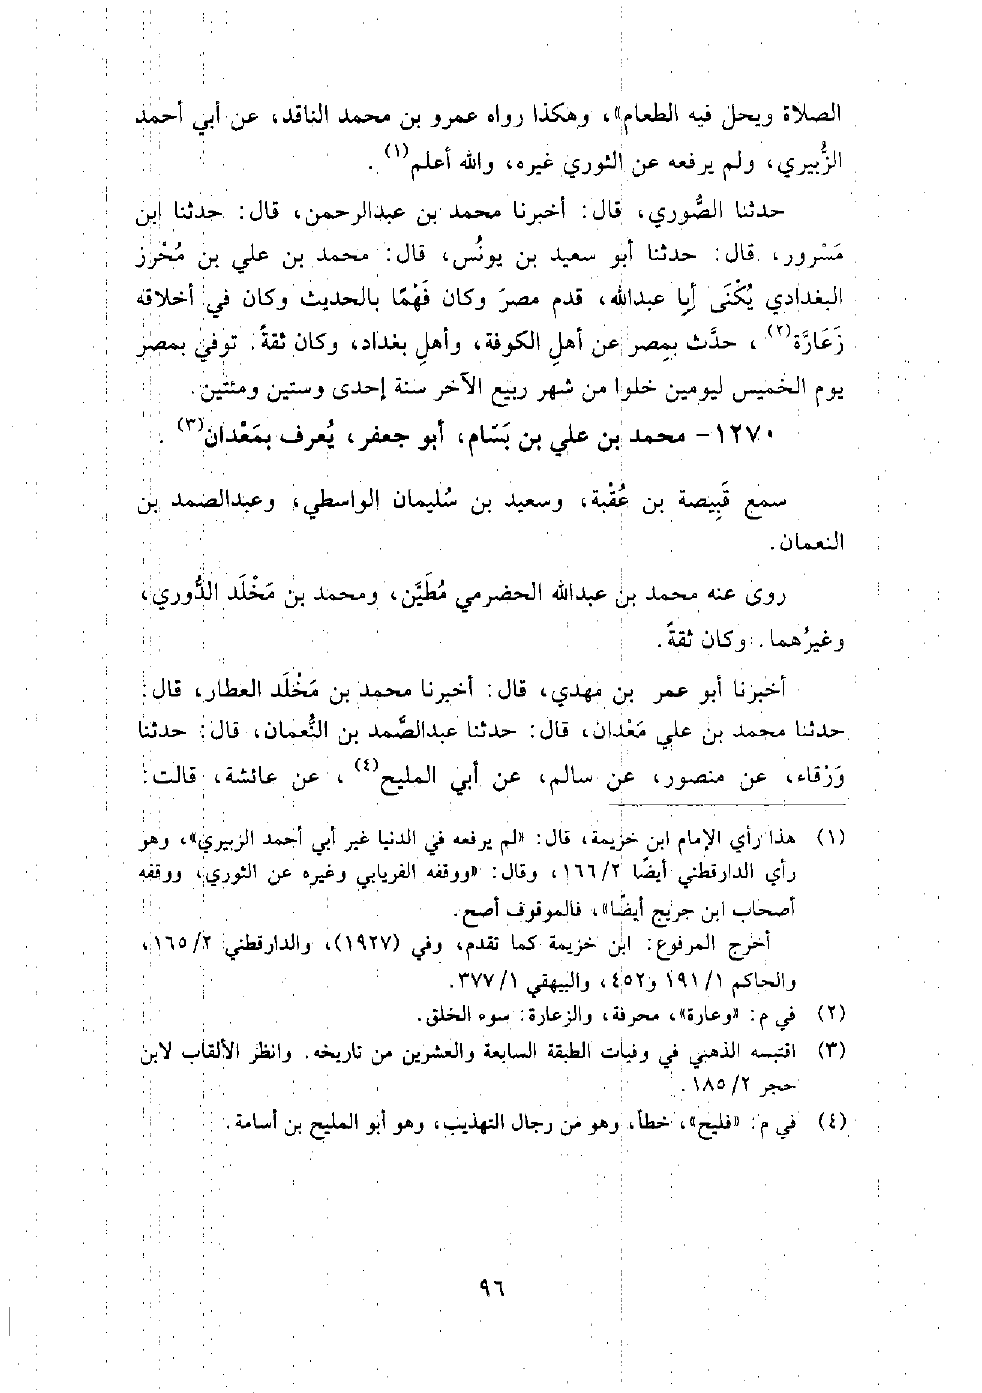 الصلاة ويحل فيه الطعام»، وهكذا رواه عمرو بن محمد الناقد، عن أبي أحمد
الزُّبيري، ولم يرفعه عن الثوري غيره، والله أعلم(١).
حدثنا الصُّوري، قال: أخبرنا محمد بن عبدالرحمن، قال: حدثنا ابن
مَسْرور، قال: حدثنا أبو سعيد بن يونُس، قال: محمد بن علي بن مُحْرِز
البغدادي يُكْنَى أبا عبدالله، قدم مصرَ وكان فَهْمًا بالحديث وكان في أخلاقه
زَعَارَّة(٢)، حدَّث بمصر عن أهلِ الكوفة، وأهلِ بغداد، وكان ثقةً. توفي بمصر
يوم الخميس ليومين خلوا من شهر ربيع الآخر سنة إحدى وستين ومئتين.
١٢٧٠- محمد بن علي بن بَسَّام، أبو جعفر، يُعرف بمَعْدان(٣).
سمع قَبِيصة بن عُقْبة، وسعيد بن سُليمان الواسطي، وعبدالصمد بن
النعمان.
روى عنه محمد بن عبدالله الحضرمي مُطَيَّن، ومحمد بن مَخْلَد الدُّوري،
وغيرُهما. وكان ثقةً.
أخبرنا أبو عمر بن مهدي، قال: أخبرنا محمد بن مَخْلَد العطار، قال:
حدثنا محمد بن علي مَعْدان، قال: حدثنا عبدالصَّمد بن النُّعمان، قال: حدثنا
وَرْقاء، عن منصور، عن سالم، عن أبي المليح(٤)، عن عائشة، قالت:
(١) هذا رأي الإمام ابن خزيمة، قال: «لم يرفعه في الدنيا غير أبي أحمد الزبيري»، وهو
رأي الدارقطني أيضًا ٢/ ١٦٦، وقال: «ووقفه الفريابي وغيره عن الثوري، ووقفه
أصحاب ابن جريج أيضًا»، فالموقوف أصح.
أخرج المرفوع: ابن خزيمة كما تقدم، وفي (١٩٢٧)، والدارقطني ٢/ ١٦٥،
والحاكم ١/ ١٩١ و٤٥٢، والبيهقي ١/ ٣٧٧.
(٢) في م: «وعارة»، محرفة، والزعارة: سوء الخلق.
(٣) اقتبسه الذهبي في وفيات الطبقة السابعة والعشرين من تاريخه. وانظر الألقاب لابن
حجر ٢/ ١٨٥.
(٤) في م: «فليح»، خطأ، وهو من رجال التهذيب، وهو أبو المليح بن أسامة.
٩٦